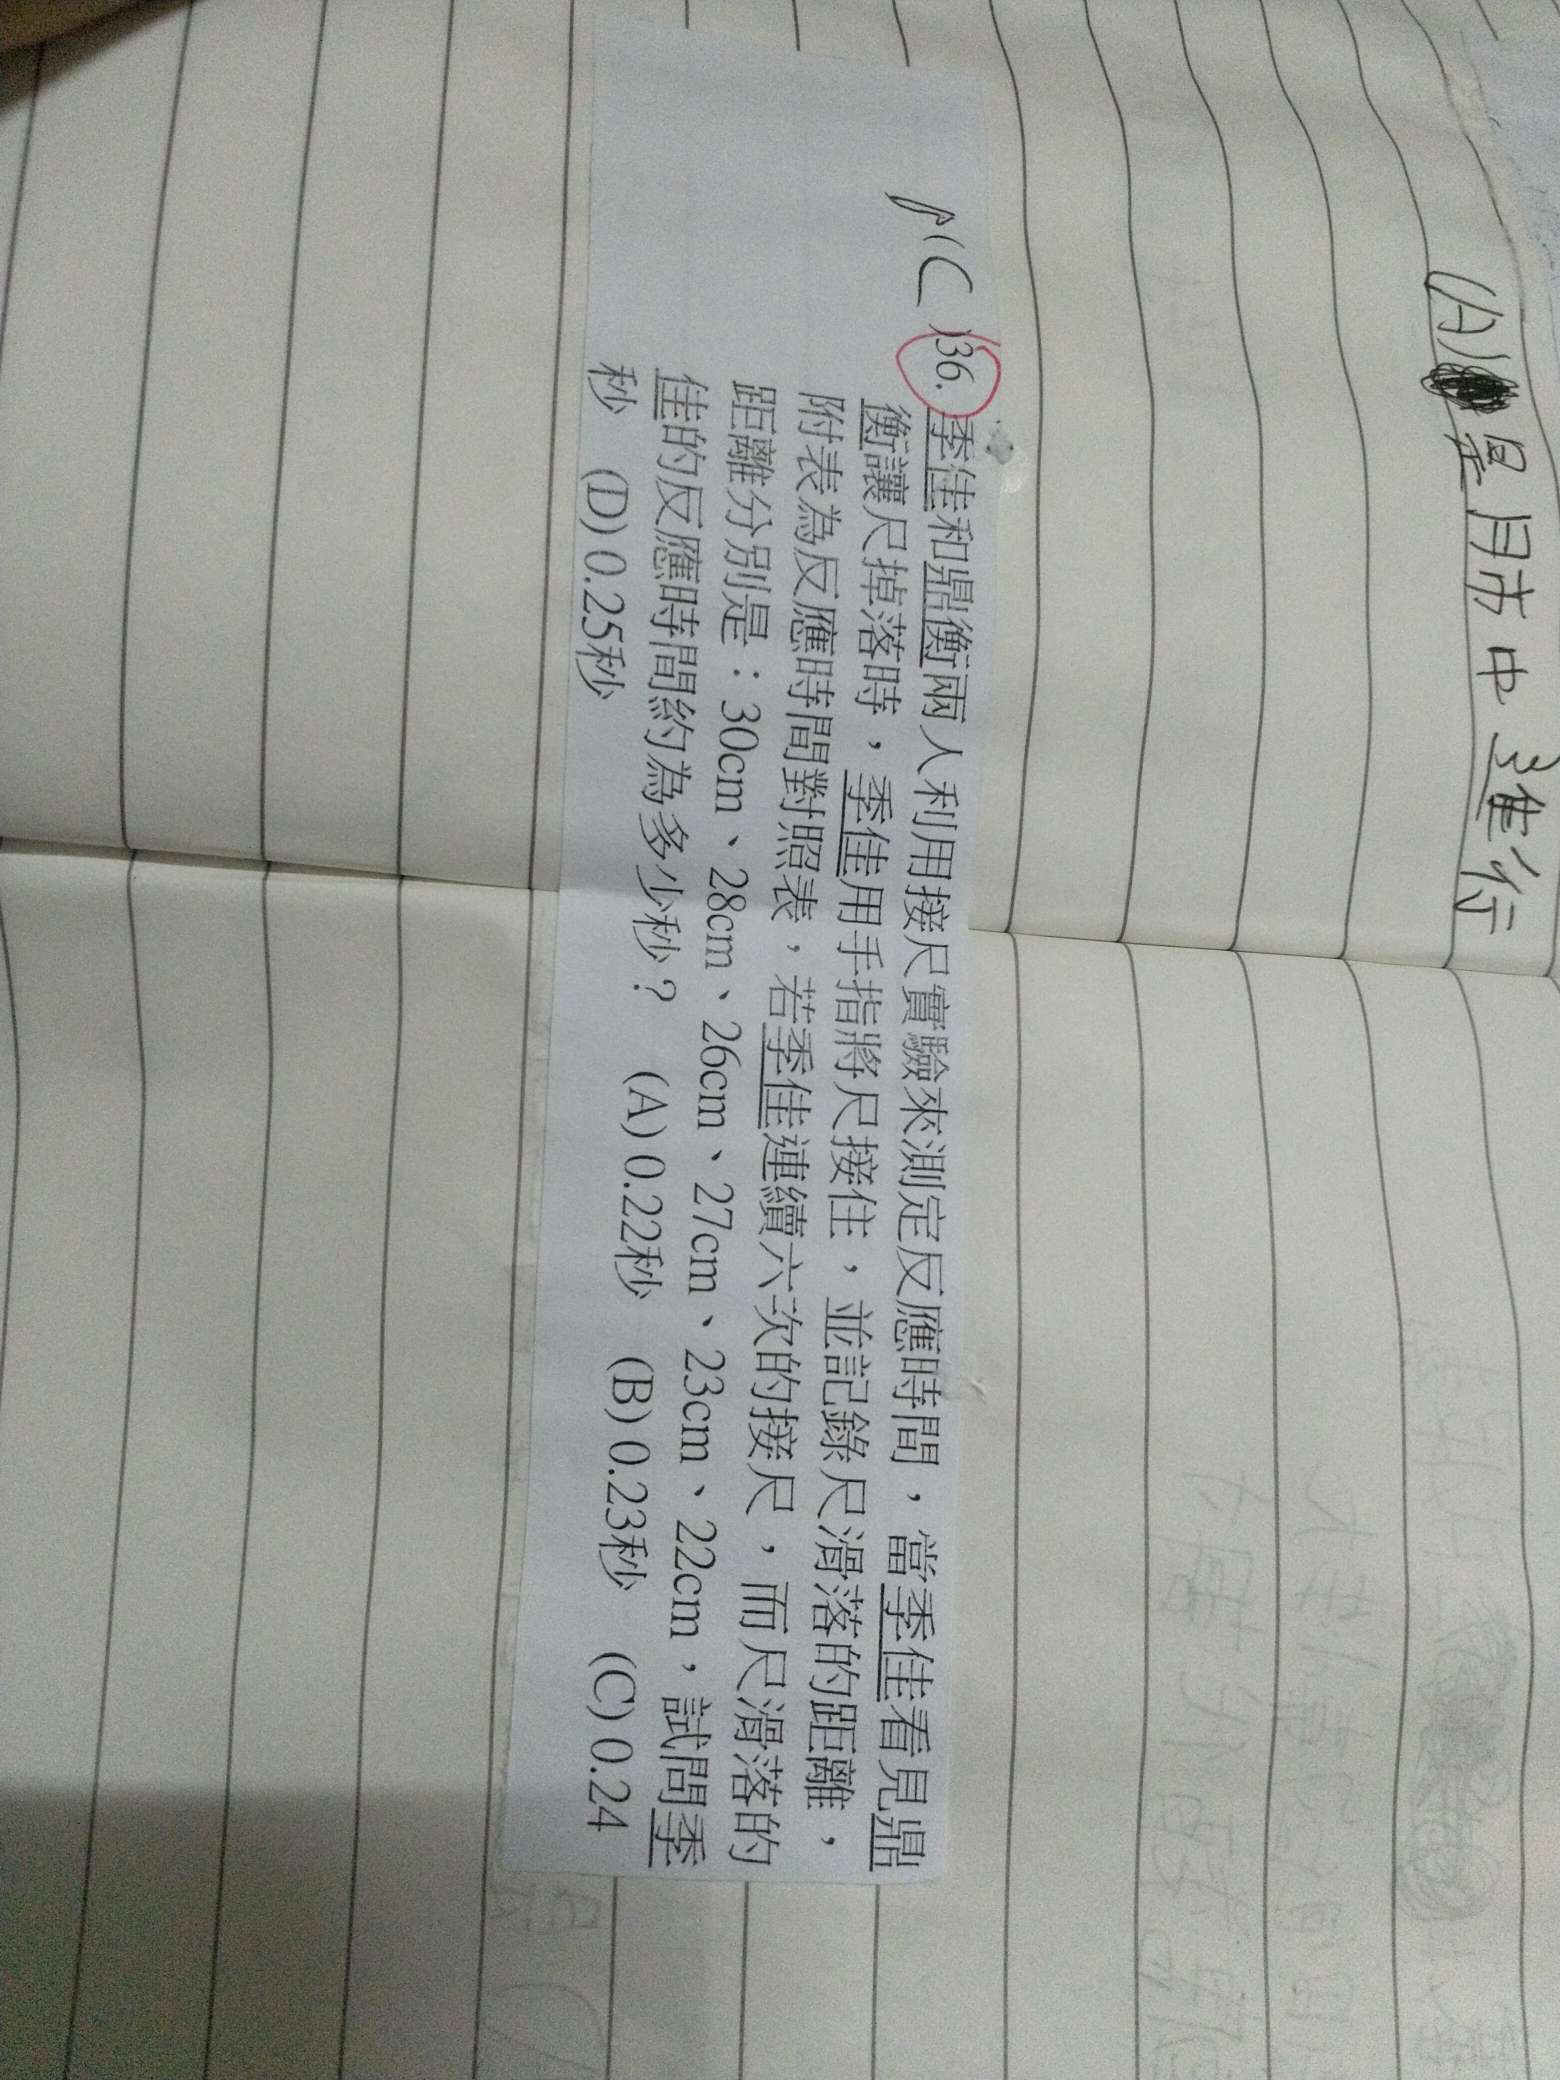 (A)是用肺中進行
(C)36. 季佳和鼎衡兩人利用接尺實驗來測定反應時間，當季佳看見鼎
衡讓尺掉落時，季佳用手指將尺接住，並記錄尺滑落的距離，
附表為反應時間對照表，若季佳連續六次的接尺，而尺滑落的
距離分別是：30cm、28cm、26cm、27cm、23cm、22cm，試問季
佳的反應時間約為多少秒？ (A) 0.22秒 (B) 0.23秒 (C) 0.24
秒 (D) 0.25秒